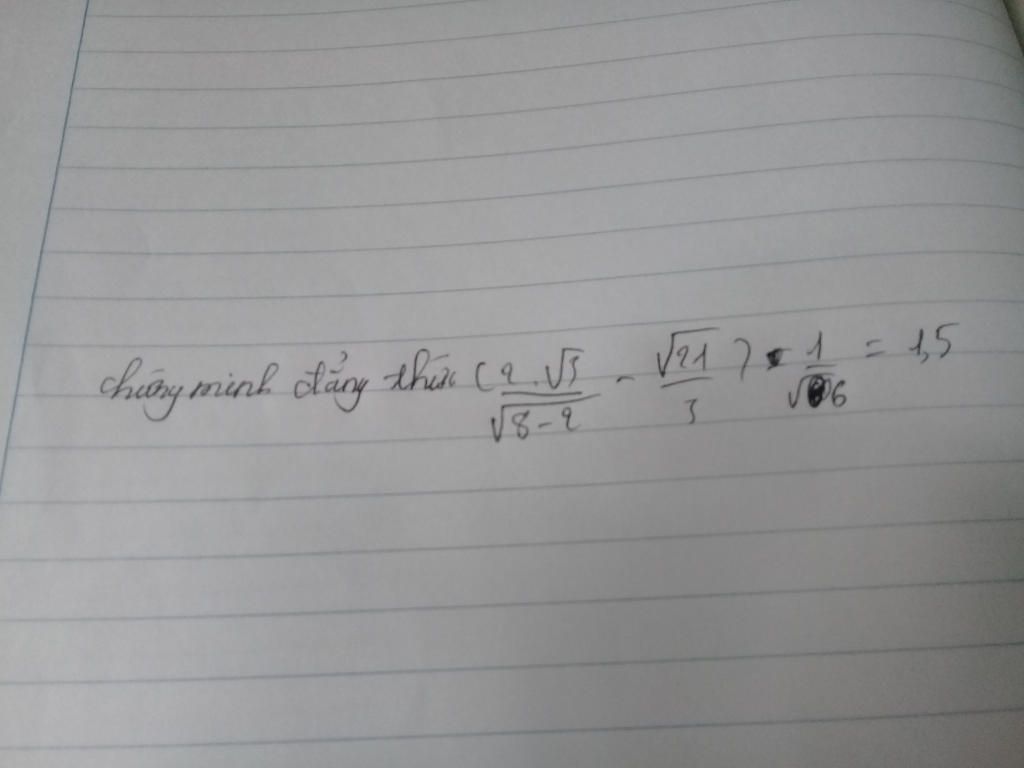 chứng minh đẳng thức (2.√3/√8-2 - √21/3) . 1/√6 = 1,5